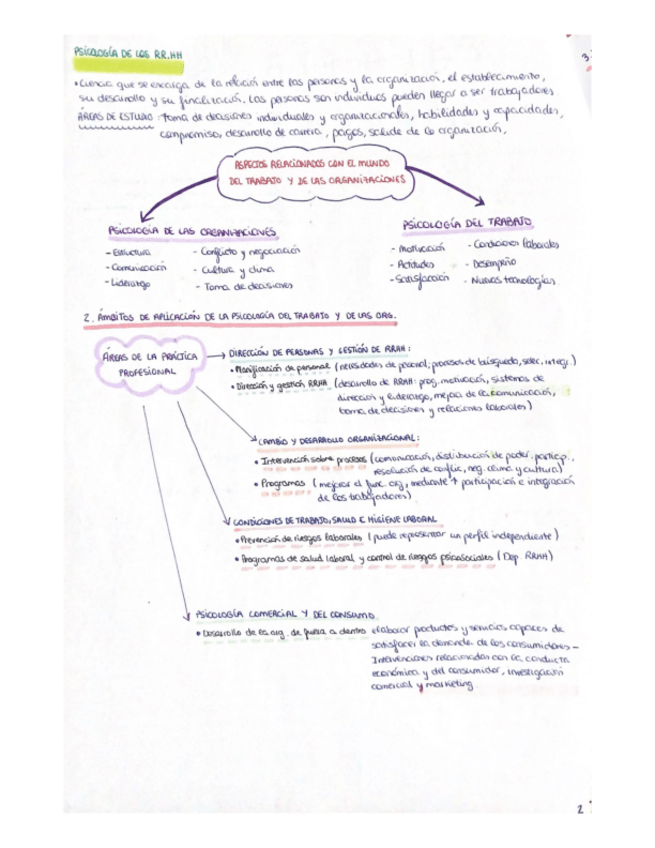 PSICOLOGÍA DE LOS RR.HH
3.
• Ciencia que se encarga de la relación entre las personas y la organización, el establecimiento,
su desarrollo y su finalización. Las personas son individuos pueden llegar a ser trabajadores
ÁREAS DE ESTUDIO: toma de decisiones individuales y organizacionales, habilidades y capacidades,
compromiso, desarrollo de carrera, pagos, salud de la organización,
ASPECTOS RELACIONADOS CON EL MUNDO
DEL TRABAJO Y DE LAS ORGANIZACIONES
PSICOLOGÍA DE LAS ORGANIZACIONES
- Estructura
- Comunicación
- Liderazgo
- Conflicto y negociación
- Cultura y clima
- Toma de decisiones
PSICOLOGÍA DEL TRABAJO
- Motivación
- Actitudes
- Satisfacción
- Condiciones laborales
- Desempeño
- Nuevas tecnologías
2. ÁMBITOS DE APLICACIÓN DE LA PSICOLOGÍA DEL TRABAJO Y DE LAS ORG.
ÁREAS DE LA PRÁCTICA
PROFESIONAL
DIRECCIÓN DE PERSONAS Y GESTIÓN DE RRHH:
• Planificación de personal (necesidades de personal, procesos de búsqueda, selec, integr.)
• Dirección y gestión RRHH (desarrollo de RRHH: prog. motivación, sistemas de
dirección y liderazgo, mejora de la comunicación,
toma de decisiones y relaciones laborales)
CAMBIO Y DESARROLLO ORGANIZACIONAL:
• Intervención sobre procesos (comunicación, distribución de poder, particip.,
resolución de conflic, neg. clima y cultura)
• Programas (mejorar el func. org, mediante + participación e integración
de los trabajadores)
CONDICIONES DE TRABAJO, SALUD E HIGIENE LABORAL
• Prevención de riesgos laborales (puede representar un perfil independiente)
• Programas de salud laboral y control de riesgos psicosociales (Dep RRHH)
PSICOLOGÍA COMERCIAL Y DEL CONSUMO
• Desarrollo de la org. de fuera a dentro elaborar productos y servicios capaces de
satisfacer la demanda de los consumidores -
Intervenciones relacionadas con la conducta
económica y del consumidor, investigación
comercial y marketing
2